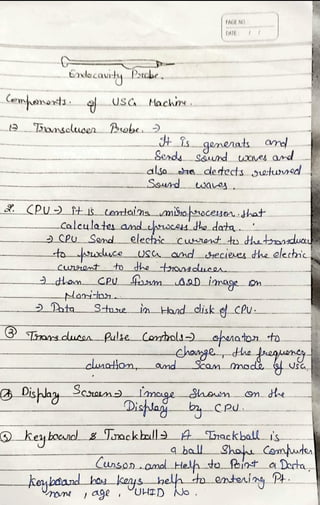 PAGE NO.
DATE: / /
Endocavity Probe.
Components. of USG Machine.
1) Transducer Probe. →
It is generats and
Sends Sound waves and
also are detects returned
Sound waves.
2. CPU → it is contains microprocessor that
calculates and process the data.
→ CPU Send electric current to the transducer
to produce USG and recieves the electric
current to the transducer
→ then CPU form 2D image on
Monitor.
→ Data Store in Hard disk of CPU.
③ Transducer Pulse Controls → operator to
Change, the frequency
duration, and Scan mode of USG.
④ Display Screen → image Shown on the
Display by CPU.
⑤ Keyboard & Trackball → A Trackball is
a ball Shape Computer
Cursor and Help to Point a Data,
Keyboard has keys help to entering Pt.
name, age, UHID No.